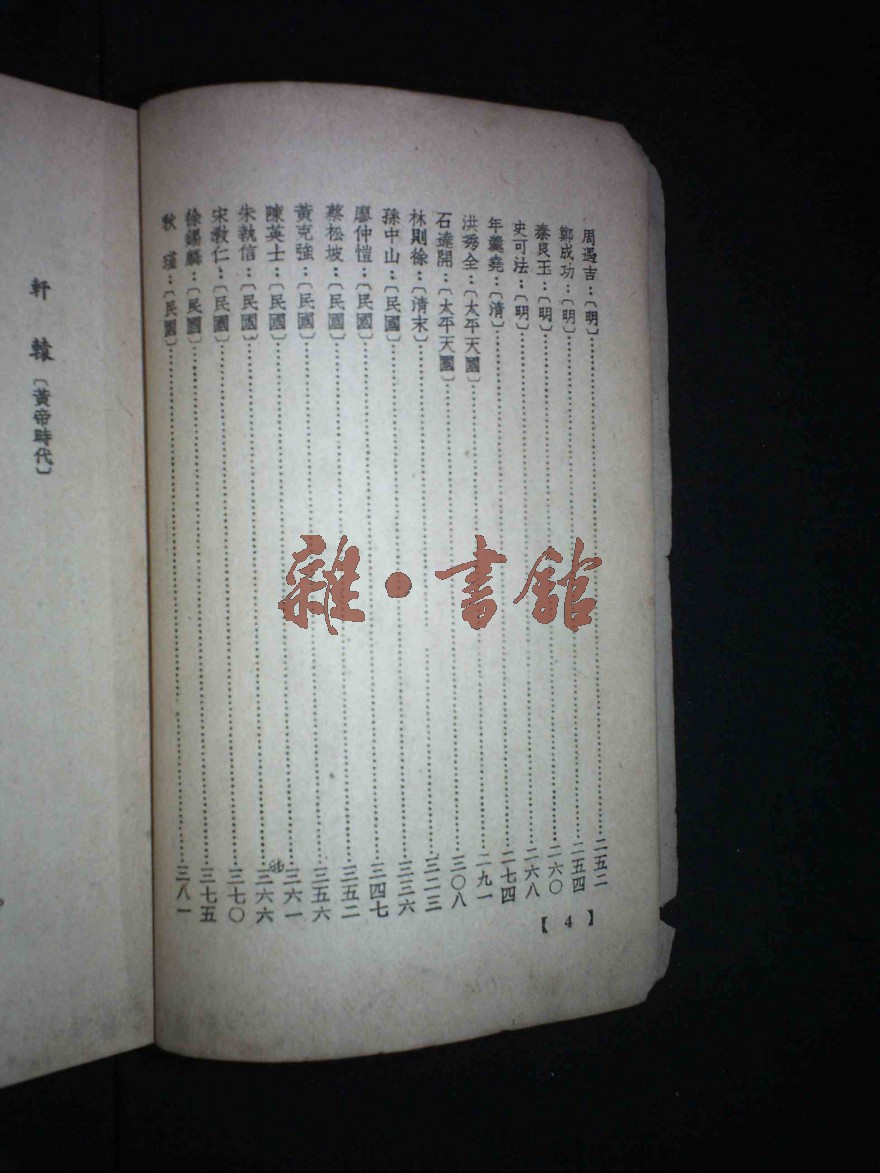 周遇吉：〔明〕……二五二
鄭成功：〔明〕……二五四
秦良玉：〔明〕……二六〇
史可法：〔明〕……二六八
年羹堯：〔清〕……二七四
洪秀全：〔太平天國〕……二九一
石達開：〔太平天國〕……三〇八
林則徐：〔清末〕……三二三
孫中山：〔民國〕……三三六
廖仲愷：〔民國〕……三四七
蔡松坡：〔民國〕……三五二
黃克強：〔民國〕……三五六
陳英士：〔民國〕……三六一
朱執信：〔民國〕……三六六
宋教仁：〔民國〕……三七〇
徐錫麟：〔民國〕……三七五
秋瑾：〔民國〕……三八一
【4】
軒轅〔黃帝時代〕
雜•書館